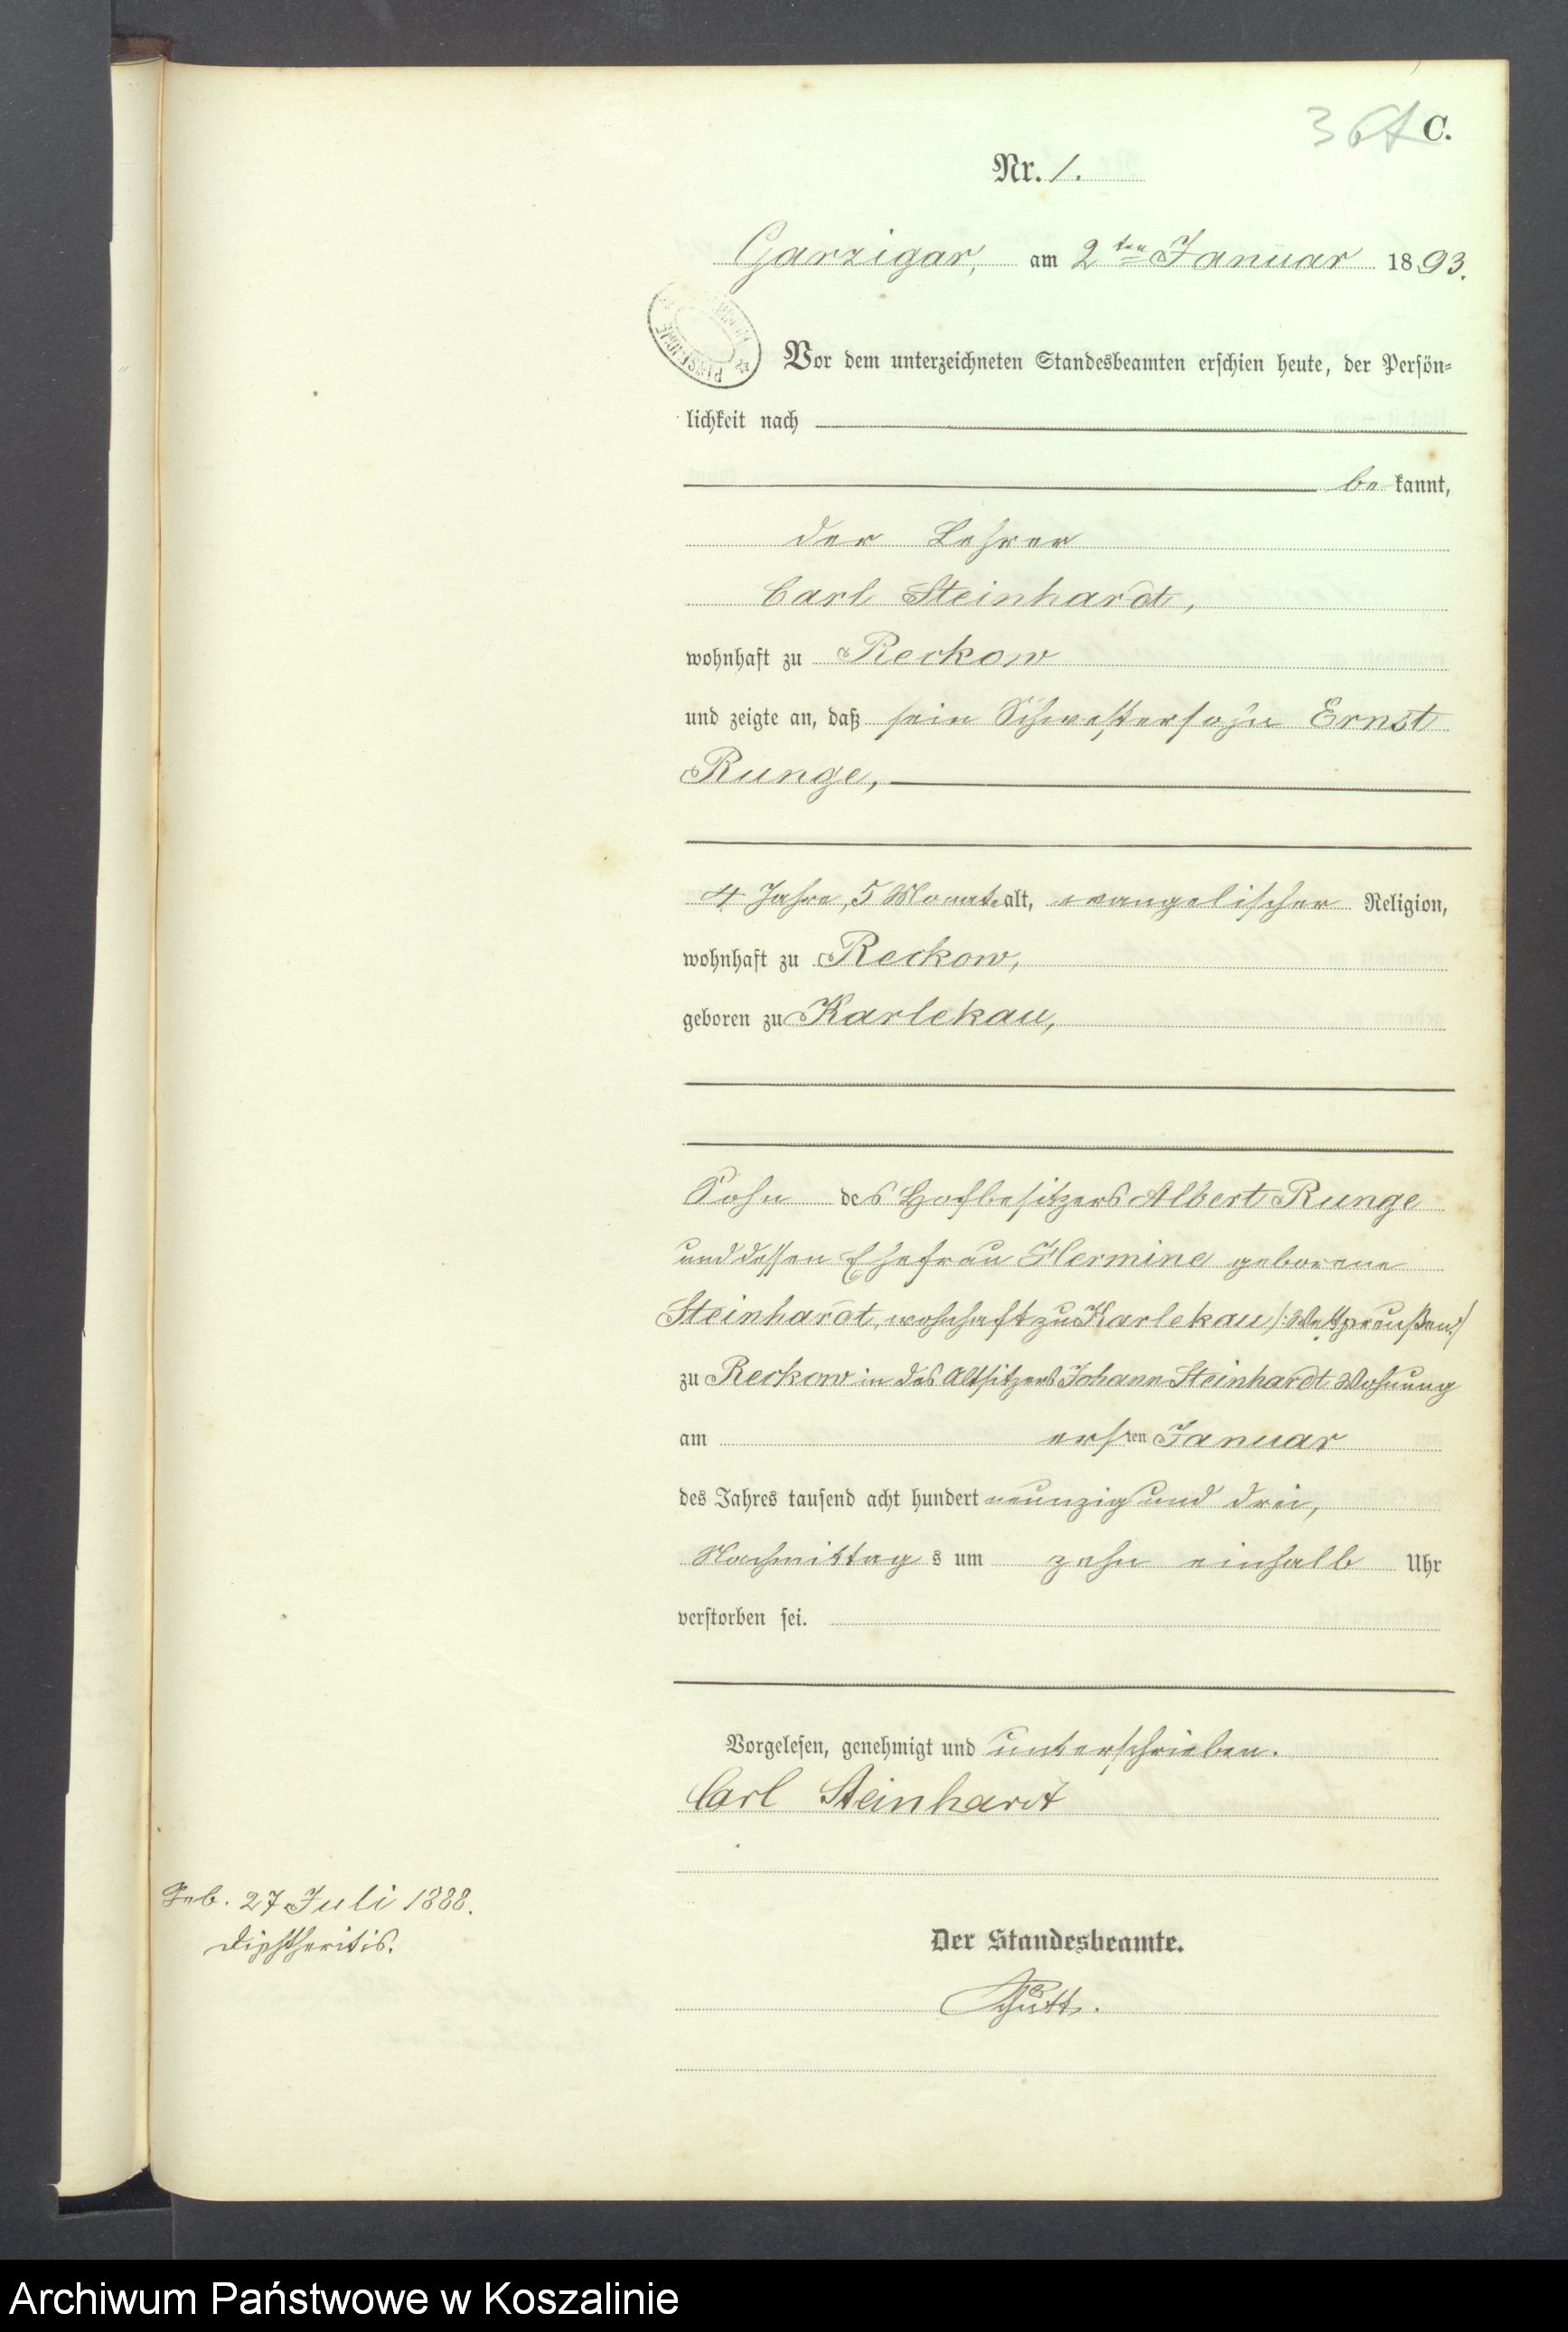 C.
Nr. 1.
Garzigar, am 2ten Januar 1893.
Vor dem unterzeichneten Standesbeamten erschien heute, der Persön-
lichkeit nach
be kannt,
der Lehrer
Carl Steinhardt,
wohnhaft zu Reckow
und zeigte an, daß sein Schwestersohn Ernst
Runge,
4 Jahre, 5 Monate alt, evangelischer Religion,
wohnhaft zu Reckow,
geboren zu Karlekau,
Sohn des Hofbesitzers Albert Runge
und dessen Ehefrau Hermine geborene
Steinhardt, wohnhaft zu Karlekau /: Westpreußen :/
zu Reckow in des Altsitzers Johann Steinhardt Wohnung
am ersten Januar
des Jahres tausend acht hundert neunzig und drei,
Nachmittags um zehn einhalb Uhr
verstorben sei.
Vorgelesen, genehmigt und unterschrieben.
Carl Steinhardt
Geb. 27 Juli 1888.
Diphtheritis.
Der Standesbeamte.
Schütt.
Archiwum Państwowe w Koszalinie